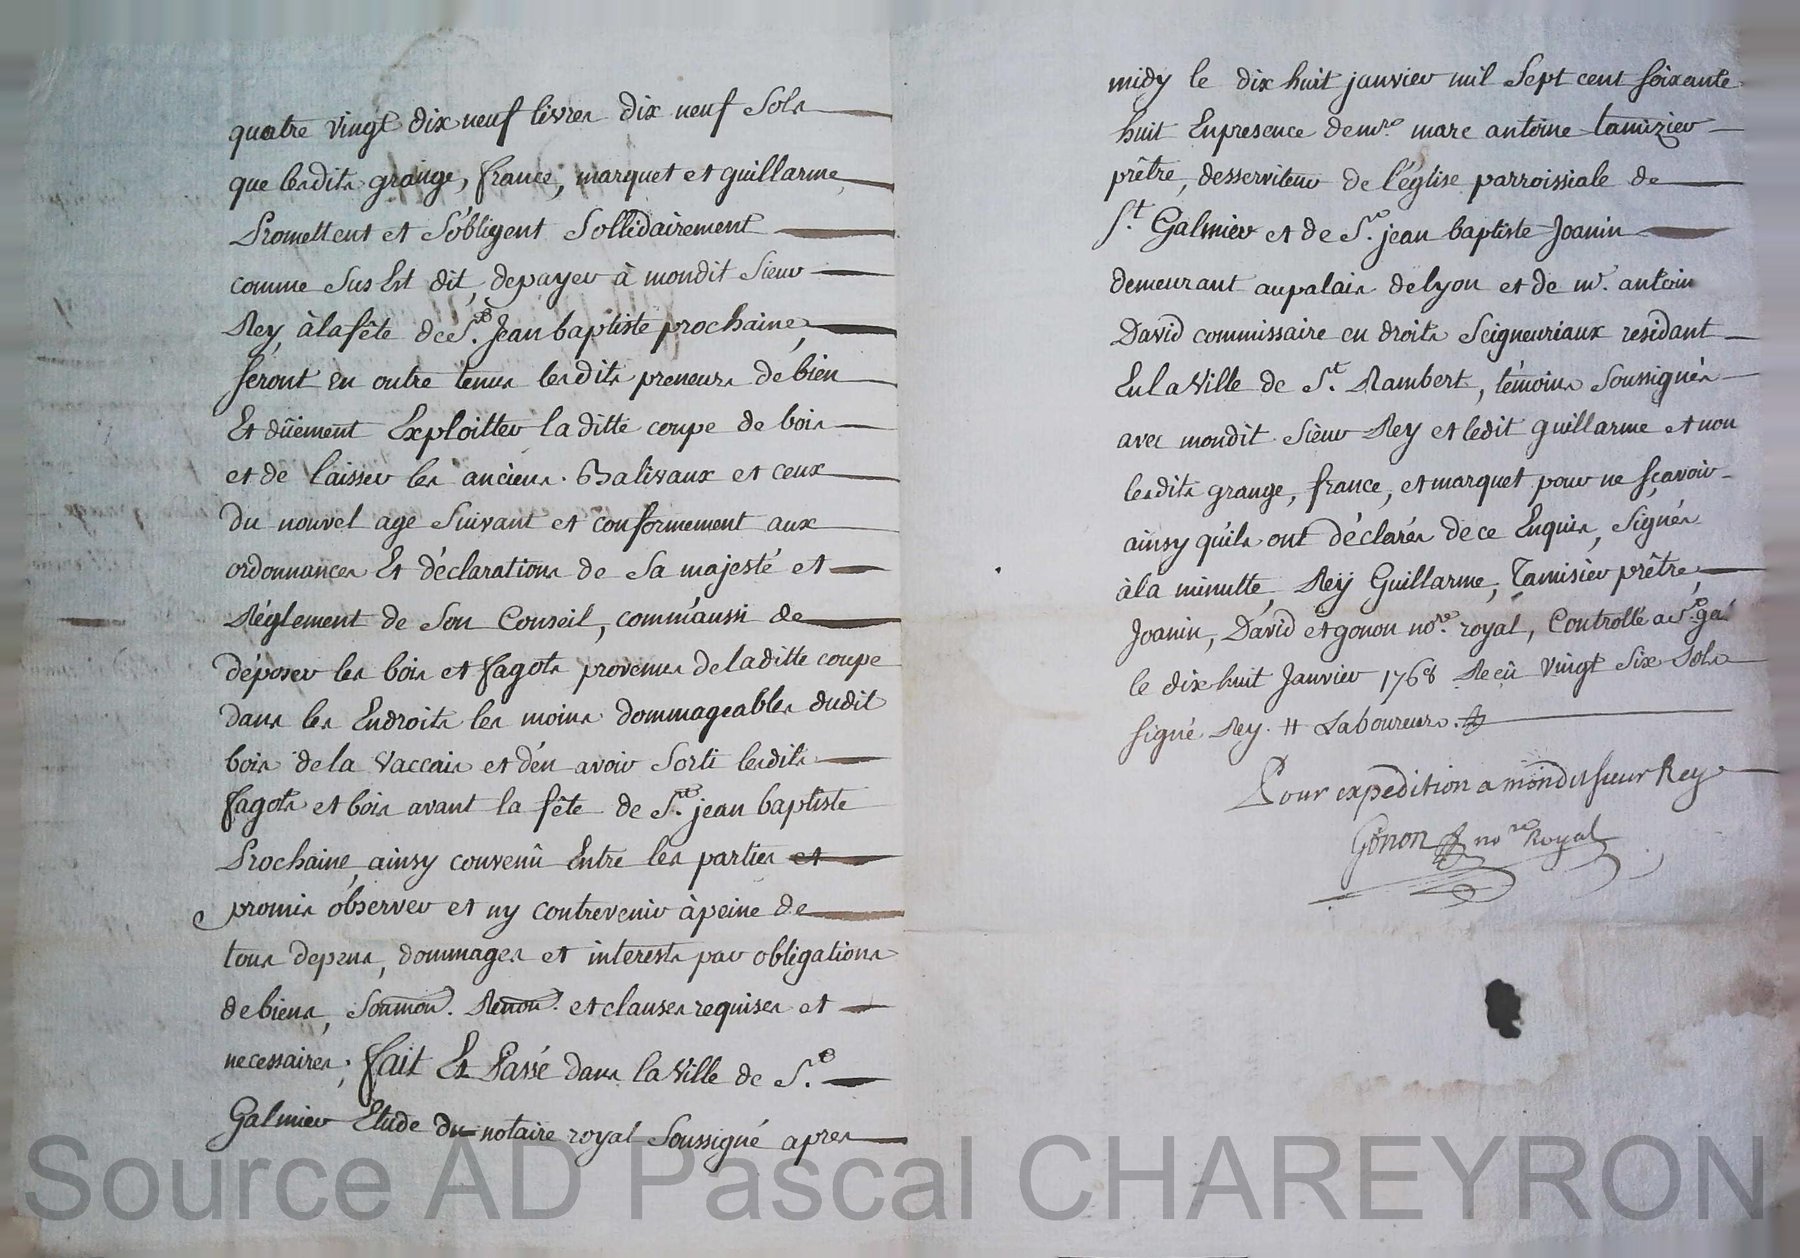 quatre vingt dix neuf livres dix neuf sols
que lesdits grange, france, marquet et guillarme,
Promettent et s'obligent sollidairement
comme sus Est dit, depayer à mondit sieur
Rey, àlafête de St. Jean baptiste prochaine,
seront en outre tenus lesdits preneurs de bien
Et dûëment Exploitter laditte coupe de bois
et de laisser les anciens Balivaux et ceux
du nouvel age suivant et conformement aux
ordonnances Et déclarations de sa majesté et
Réglement de son Conseil, comm'aussi de
déposer les bois et fagots provenus deladitte coupe
dans les Endroits les moins dommageables dudit
bois dela Vaccais et d'en avoir sorti lesdits
fagots et bois avant la fête de St. jean baptiste
Prochaine, ainsy convenû Entre les parties et
promis observer et ny contrevenir àpeine de
tous depens, dommages et interests par obligations
debiens, soumon. Renon. et clauses requises et
necessaires; fait Et Passé dans la Ville de St.
Galmier Etude du notaire royal soussigné apres
midy le dix huit janvier mil sept cent soixante
huit Enpresence demre. marc antoine tamizier
prêtre, desserviteur de l'église parroissiale de
St. Galmier et de Sr. jean baptiste Joanin
demeurant aupalais delyon et de mr. antoin
David commissaire en droits seigneuriaux residant
Enla Ville de St. Rambert, témoins soussignés
avec mondit sieur Rey et ledit guillarme et non
lesdits grange, france, et marquet pour ne sçavoir
ainsy qu'ils ont déclarés de ce Enquis, signés
àla minutte, Reÿ Guillarme, Tamisier prêtre,
Joanin, David etgonon nore. royal, Controllé a St. gal
le dix huit Janvier 1768 Reçû vingt six sols
signé Rey. # Laboureurs.
Pour expedition a mondit sieur Rey
Gonon nore Royal
Source AD Pascal CHAREYRON